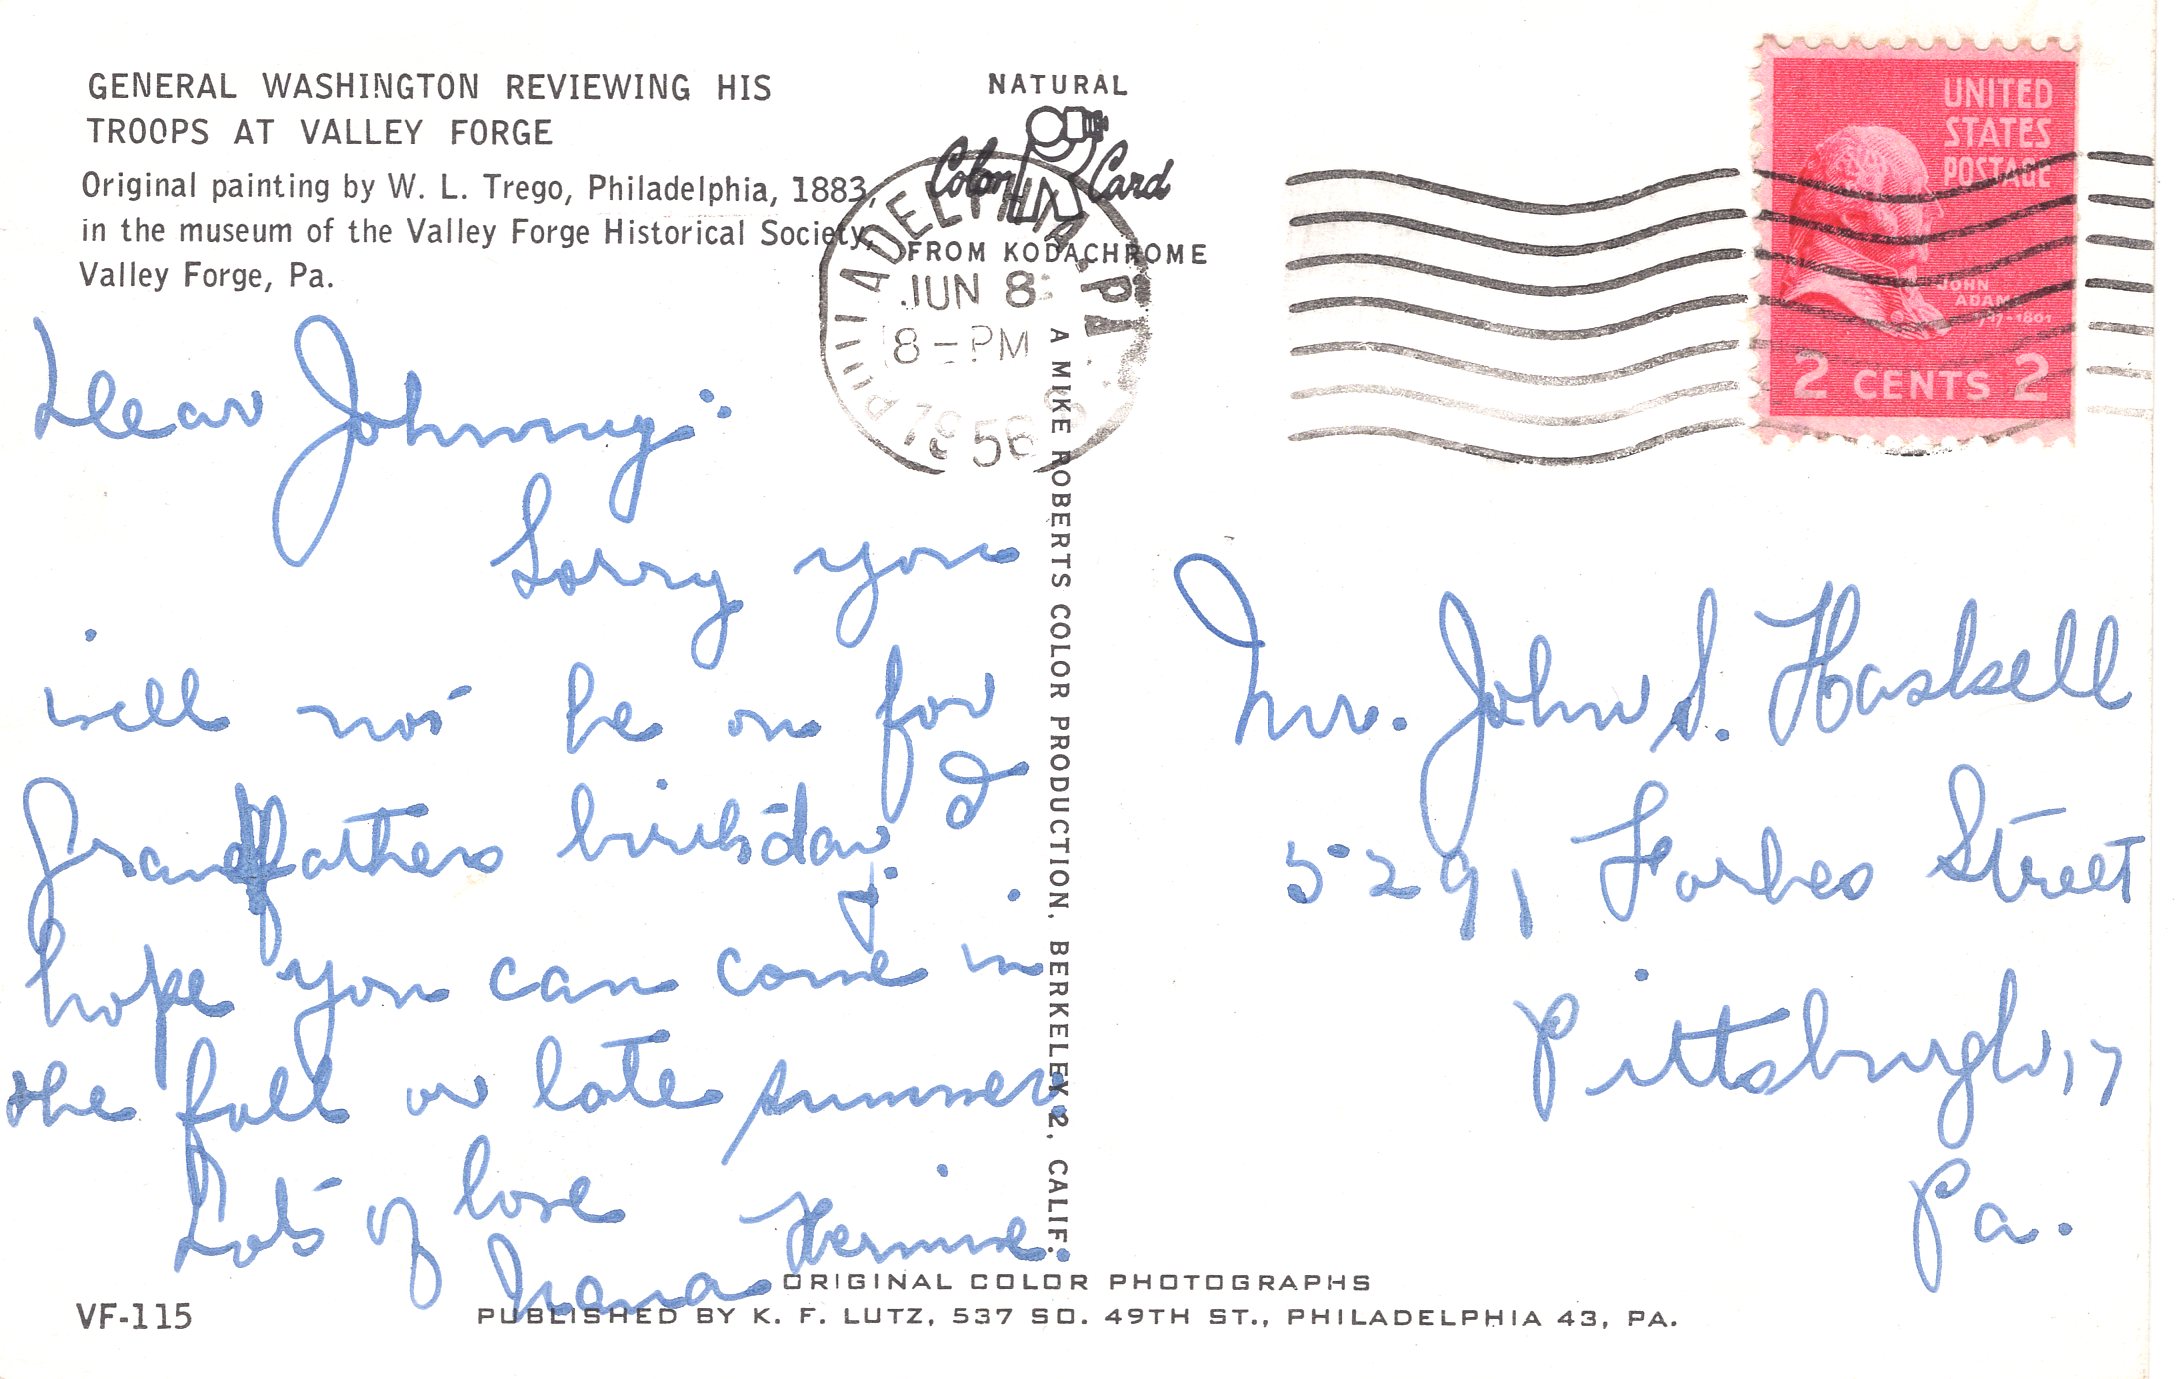 GENERAL WASHINGTON REVIEWING HIS
TROOPS AT VALLEY FORGE
Original painting by W. L. Trego, Philadelphia, 1883,
in the museum of the Valley Forge Historical Society,
Valley Forge, Pa.
NATURAL
Color Card
FROM KODACHROME
PHILADELPHIA, PA
JUN 8
8-PM
1956
UNITED
STATES
POSTAGE
JOHN
ADAMS
1797-1801
2 CENTS 2
Dear Johnny:
Sorry you
will not be on for
Grandfathers birthday. I
hope you can come in
the fall or late summer.
Lots of love
Nana Hermine.
A MIKE ROBERTS COLOR PRODUCTION, BERKELEY 2, CALIF.
Mr. John S. Haskell
5291 Forbes Street
Pittsburgh 17
Pa.
ORIGINAL COLOR PHOTOGRAPHS
VF-115
PUBLISHED BY K. F. LUTZ, 537 SO. 49TH ST., PHILADELPHIA 43, PA.